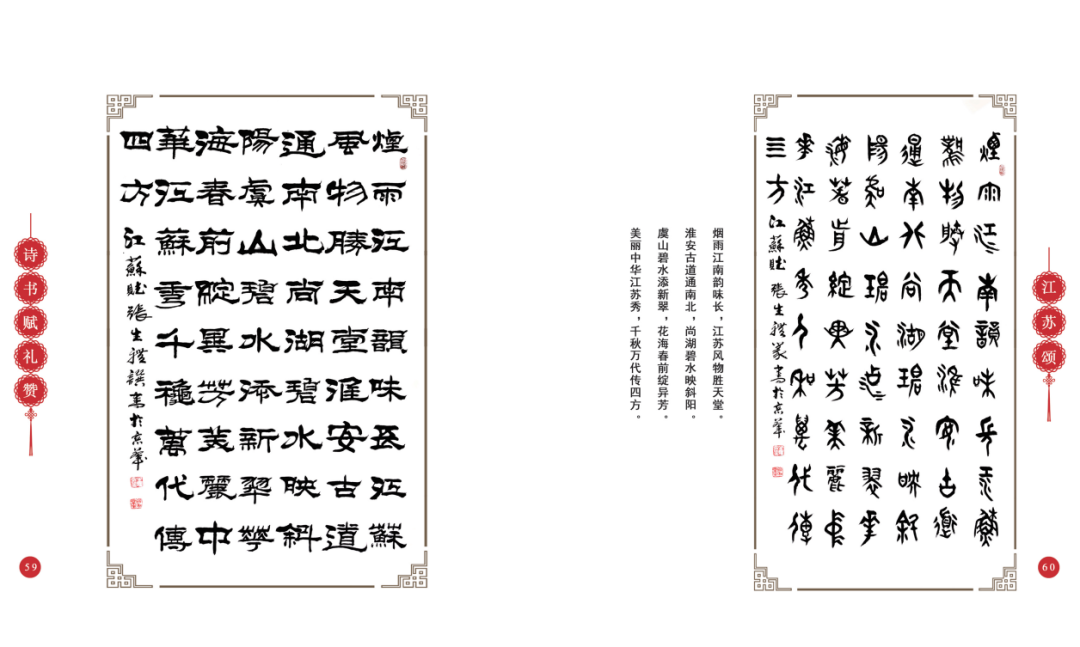 诗书赋礼赞
煙雨江南韻味長江蘇
風物勝天堂淮安古道
通南北尚湖碧水映斜
陽虞山碧水添新翠華
海春前綻異芳美麗中
華江蘇秀千龝萬代傳
四方
江蘇賦 張生禮撰書於京華
59
烟雨江南韵味长，江苏风物胜天堂。
淮安古道通南北，尚湖碧水映斜阳。
虞山碧水添新翠，花海春前绽异芳。
美丽中华江苏秀，千秋万代传四方。
煙雨江南韻味長江蘇
風物勝天堂淮安古道
通南北尚湖碧水映斜
陽虞山碧水添新翠華
海春前綻異芳美麗中
華江蘇秀千秋萬代傳
亖方
江蘇賦 張生禮篆書於京華
江苏颂
60